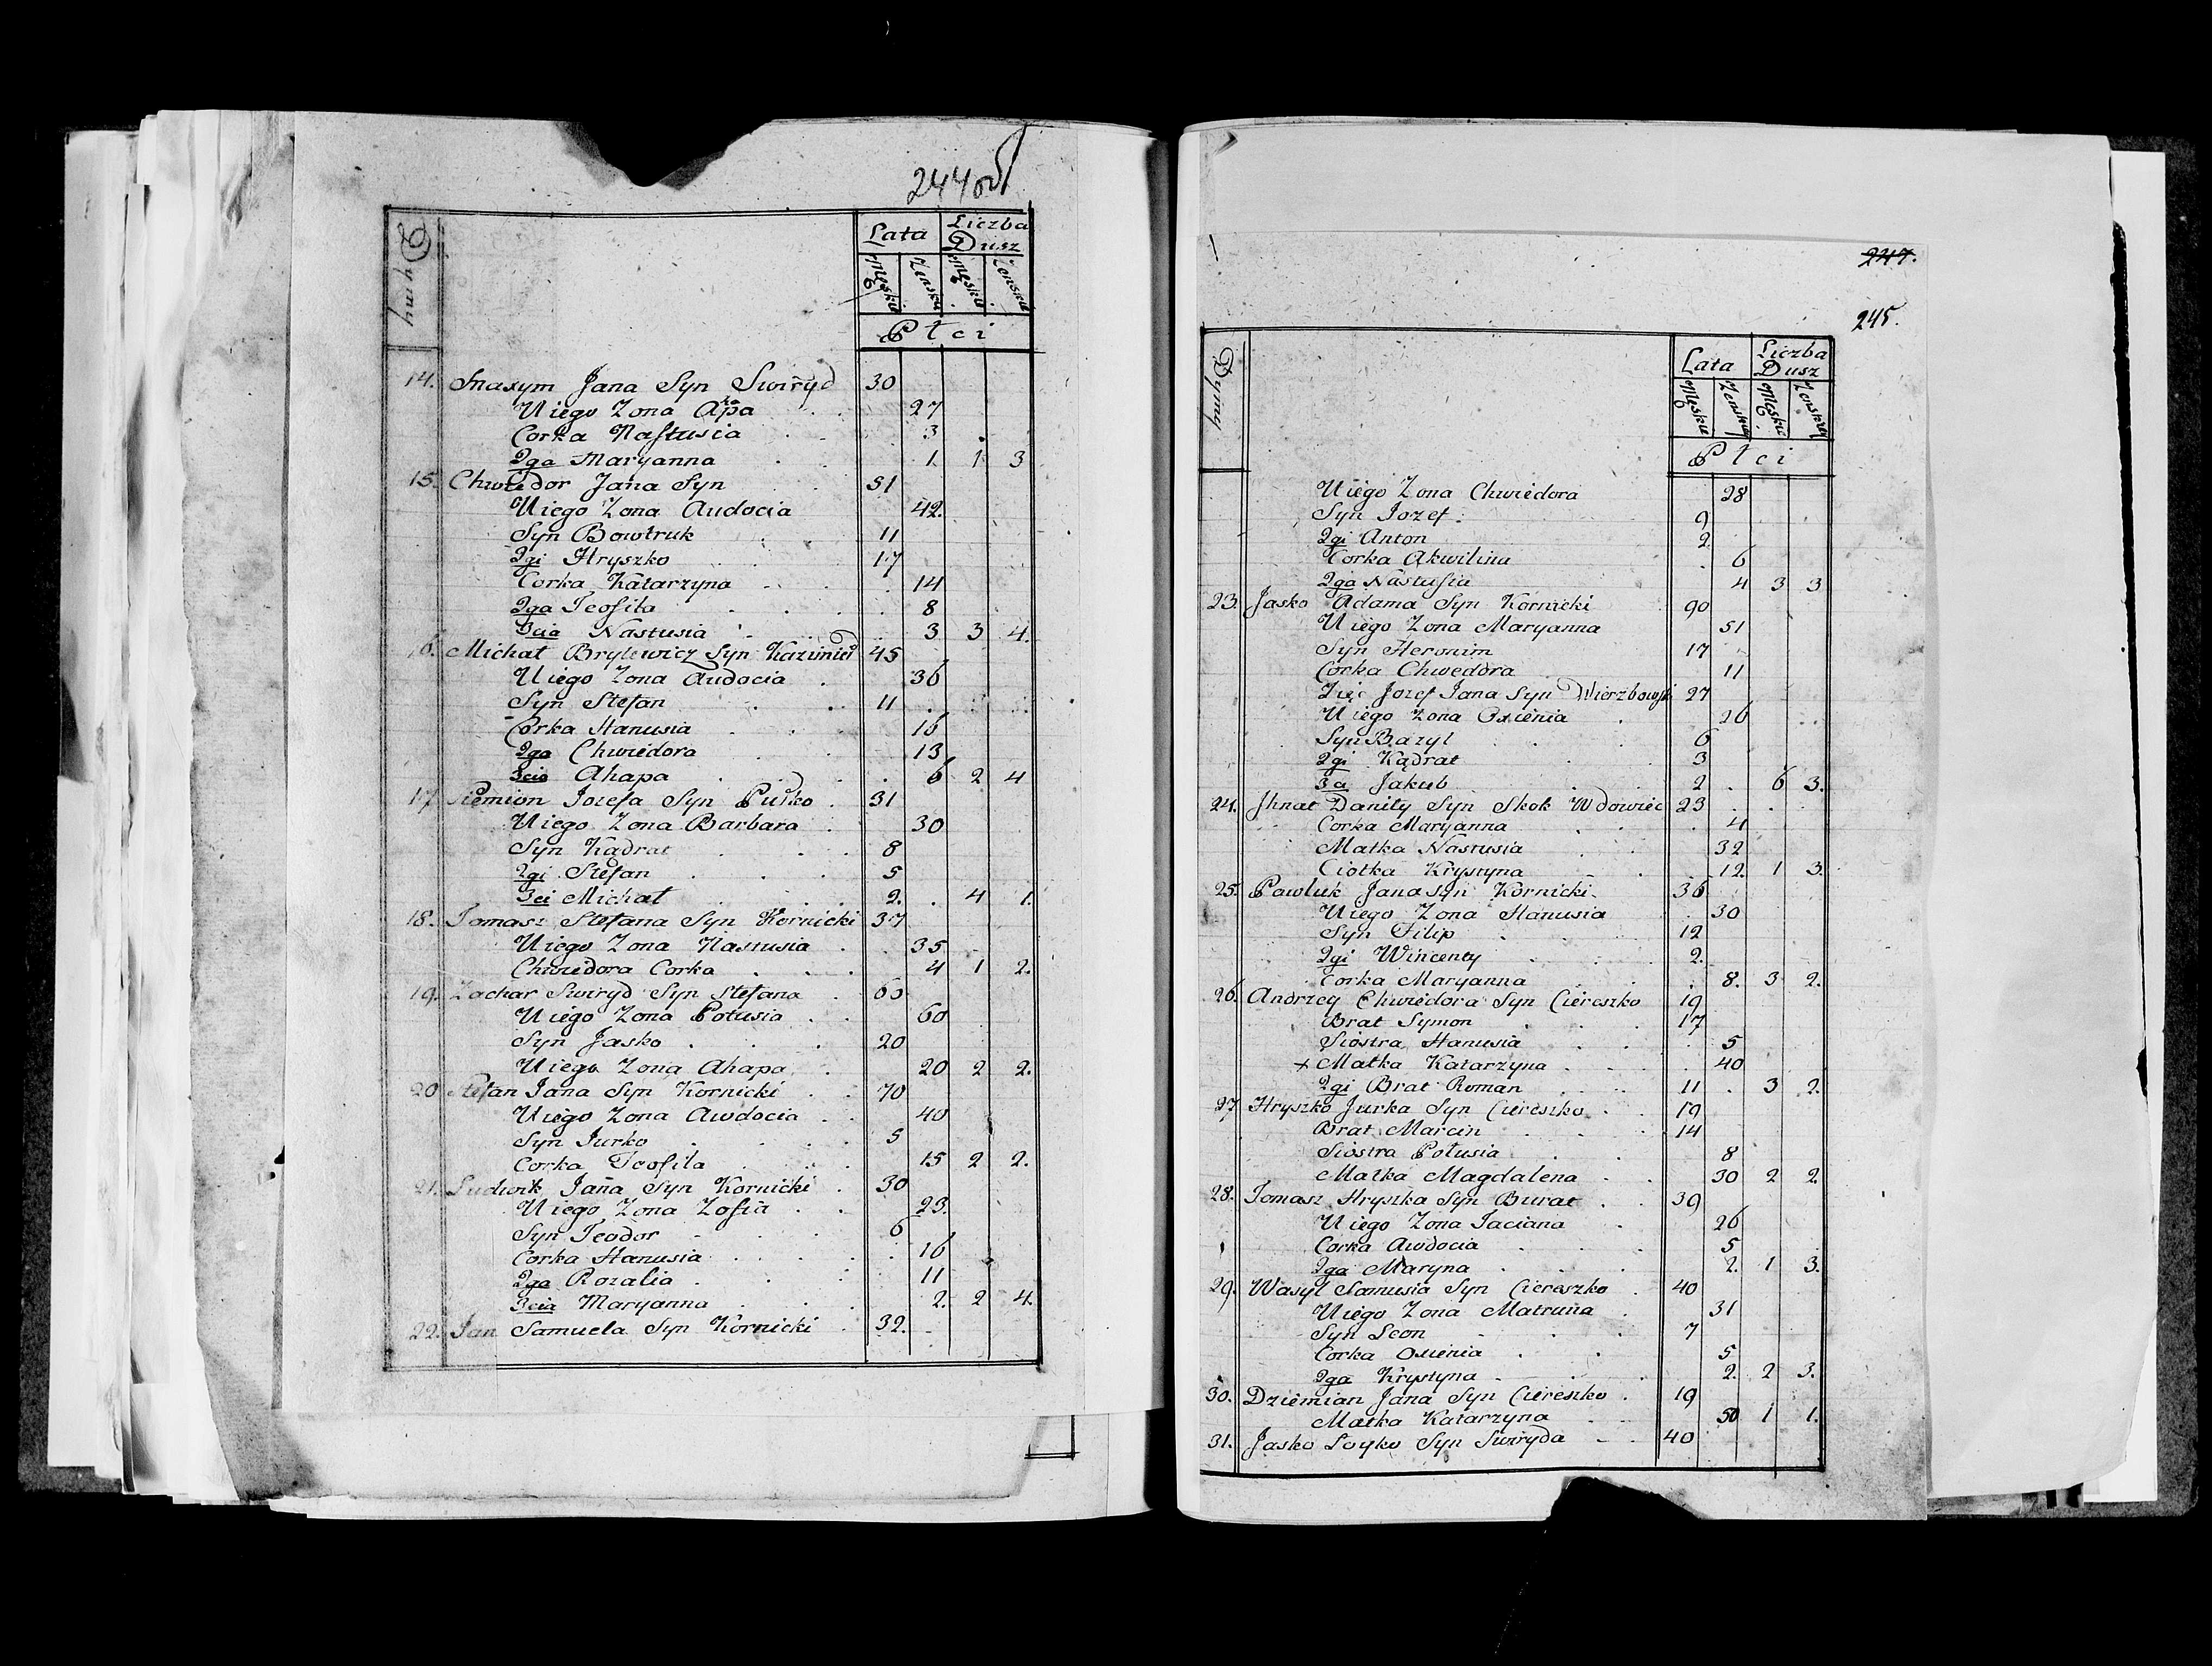 244 об
Dymy
Lata Liczba Dusz
Męska Żeńska Męska Żeńska
Płci
14. Maxym Jana Syn Swiryd 30
U iego Zona Ahapa 27
Corka Nastusia 3
2ga Maryanna 1 1 3
15. Chwiedor Jana Syn 51
U iego Zona Audocia 42.
Syn Bowtruk 11
2gi Hryszko 17
Corka Katarzyna 14
2ga Teofila 8
3cia Nastusia 3 3 4.
16. Michał Brylewicz Syn Kazimierz 45
U iego Zona Audocia 36
Syn Stefan 11
Corka Hanusia 16
2ga Chwiedora 13
3cia Ahapa 6 2 4
17 Siemion Jozefa Syn Puśko 31
U iego Zona Barbara 30
Syn Kądrat 8
2gi Stefan 5
3ci Michał 2. 4 1.
18. Tomasz Stefana Syn Kornicki 37
U iego Zona Nastusia 35
Chwiedora Corka 4 1 2.
19. Zachar Swiryd Syn Stefana 60
U iego Zona Połusia 60
Syn Jasko 20
U iego Zona Ahapa 20 2 2.
20 Stefan Jana Syn Kornicki 70
U iego Zona Awdocia 40
Syn Jurko 5
Corka Teofila 15 2 2.
21. Ludwik Jana Syn Kornicki 30
U iego Zona Zofia 23.
Syn Teodor 6
Corka Hanusia 16
2ga Rozalia 11
3cia Maryanna 2. 2 4.
22. Jan Samuela Syn Kornicki 32.
247.
245.
Dymy
Lata Liczba Dusz
Męska Żeńska Męska Żeńska
Płci
U iego Zona Chwiedora 28
Syn Jozef 9
2gi Anton 2
Corka Akwilina 6
2ga Nastusia 4 3 3
23 Jasko Adama Syn Kornicki 90
U iego Zona Maryanna 51
Syn Heronim 17
Corka Chwedora 11
Zięc Jozef Jana Syn Wierzbowski 27
U iego Zona Oxienia 26
Syn Bazyl 6
2gi Kądrat 3
3ci Jakub 2 6 3.
24. Jhnat Daniły Syn Skok Wdowiec 23
Corka Maryanna 4
Matka Nastusia 32
Ciotka Krystyna 12. 1 3.
25. Pawluk Jana Syn Kornicki 36
U iego Zona Hanusia 30
Syn Filip 12
2gi Wincenty 2.
Corka Maryanna 8. 3 2.
26. Andrzey Chwiedora Syn Ciereszko 19
Brat Symon 17
Siostra Hanusia 5
+ Matka Katarzyna 40
2gi Brat Roman 11 3 2.
27 Hryszko Jurka Syn Ciereszko 19
Brat Marcin 14
Siostra Połusia 8
Matka Magdalena 30 2 2.
28. Tomasz Hryszka Syn Burat 39
U iego Zona Taciana 26
Corka Awdocia 5
2ga Maryna 2. 1 3.
29. Wasyl Samusia Syn Ciereszko 40
U iego Zona Matruna 31
Syn Leon 7
Corka Oxienia 5
2ga Krystyna 2. 2 3.
30. Dziemian Jana Syn Ciereszko 19
Matka Katarzyna 50 1 1.
31. Jasko Loyko Syn Swiryda 40